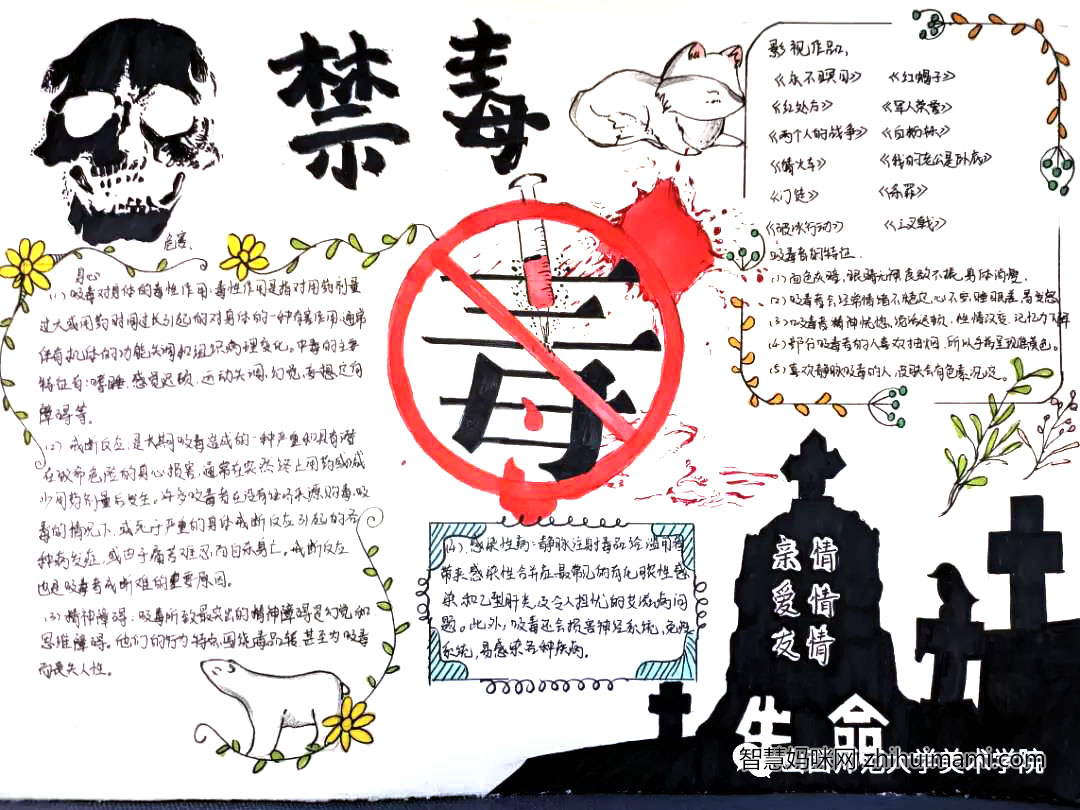 禁毒
影视作品:
《永不瞑目》 《红帽子》
《红处方》 《军人荣誉》
《两个人的战争》 《白粉妹》
《情火车》 《我的老公是卧底》
《门徒》 《赤罪》
《破冰行动》 《三叉戟》
吸毒者的特征:
(1)面色灰暗,眼睛无神,食欲不振,身体消瘦。
(2)吸毒者会经常情绪不稳定,心不安,睡眠差,易发怒
(3)吸毒者精神恍惚,说话迟顿,性情改变,记忆力下降
(4)部分吸毒者的人喜欢抽烟,所以手指呈现焦黄色。
(5)喜欢静脉吸毒的人,皮肤会有色素沉淀。
危害、
身心
(1)吸毒对身体的毒性作用:毒性作用是指对用药剂量
过大或用药时间过长引起的对身体的一种有害作用,通常
伴有机体的功能失调和组织病理变化。中毒的主要
特征有:嗜睡、感觉迟顿、运动失调、幻觉、妄想、定向
障碍等。
(2)戒断反应:是长期吸毒造成的一种严重和具有潜
在致命危险的身心损害,通常在突然终止用药或减
少用药剂量后发生。许多吸毒者在没有经济来源购毒、吸
毒的情况下,或死于严重的身体戒断反应引起的各
种病发症,或由于痛苦难忍而自杀身亡。戒断反应
也是吸毒者戒断难的重要原因。
(3)精神障碍:吸毒所致最突出的精神障碍是幻觉和
思维障碍。他们的行为特点围绕毒品转,甚至为吸毒
而丧失人性。
毒
(4)感染性病:静脉注射毒品给滥用者
带来感染性合并症,最常见的有化脓性感
染和乙型肝炎,及令人担忧的艾滋病问
题。此外,吸毒还会损害神经系统,免疫
系统,易感染各种疾病。
亲情
爱情
友情
生命
智慧妈咪网 zhihuimami.com
师范大学美术学院